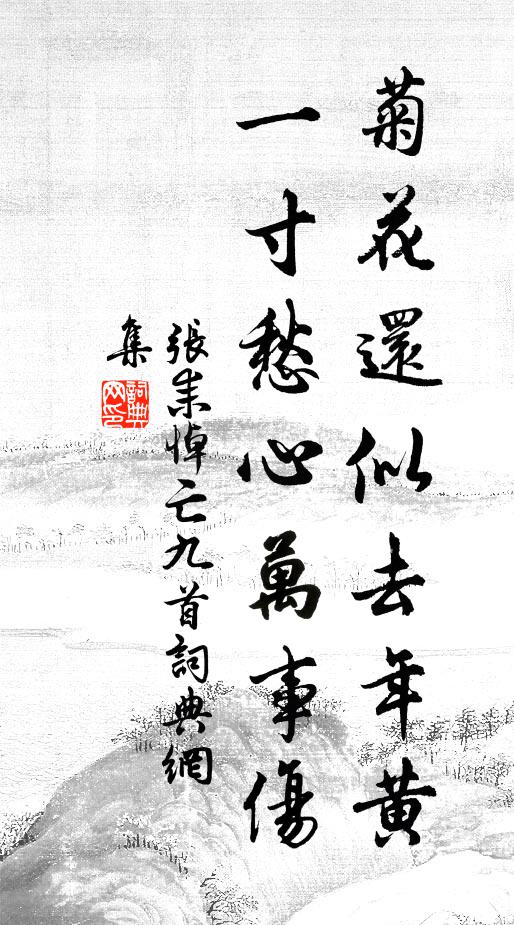 菊花還似去年黃
一寸愁心萬事傷
張耒悼亡九首詞典網
集
詞典網印